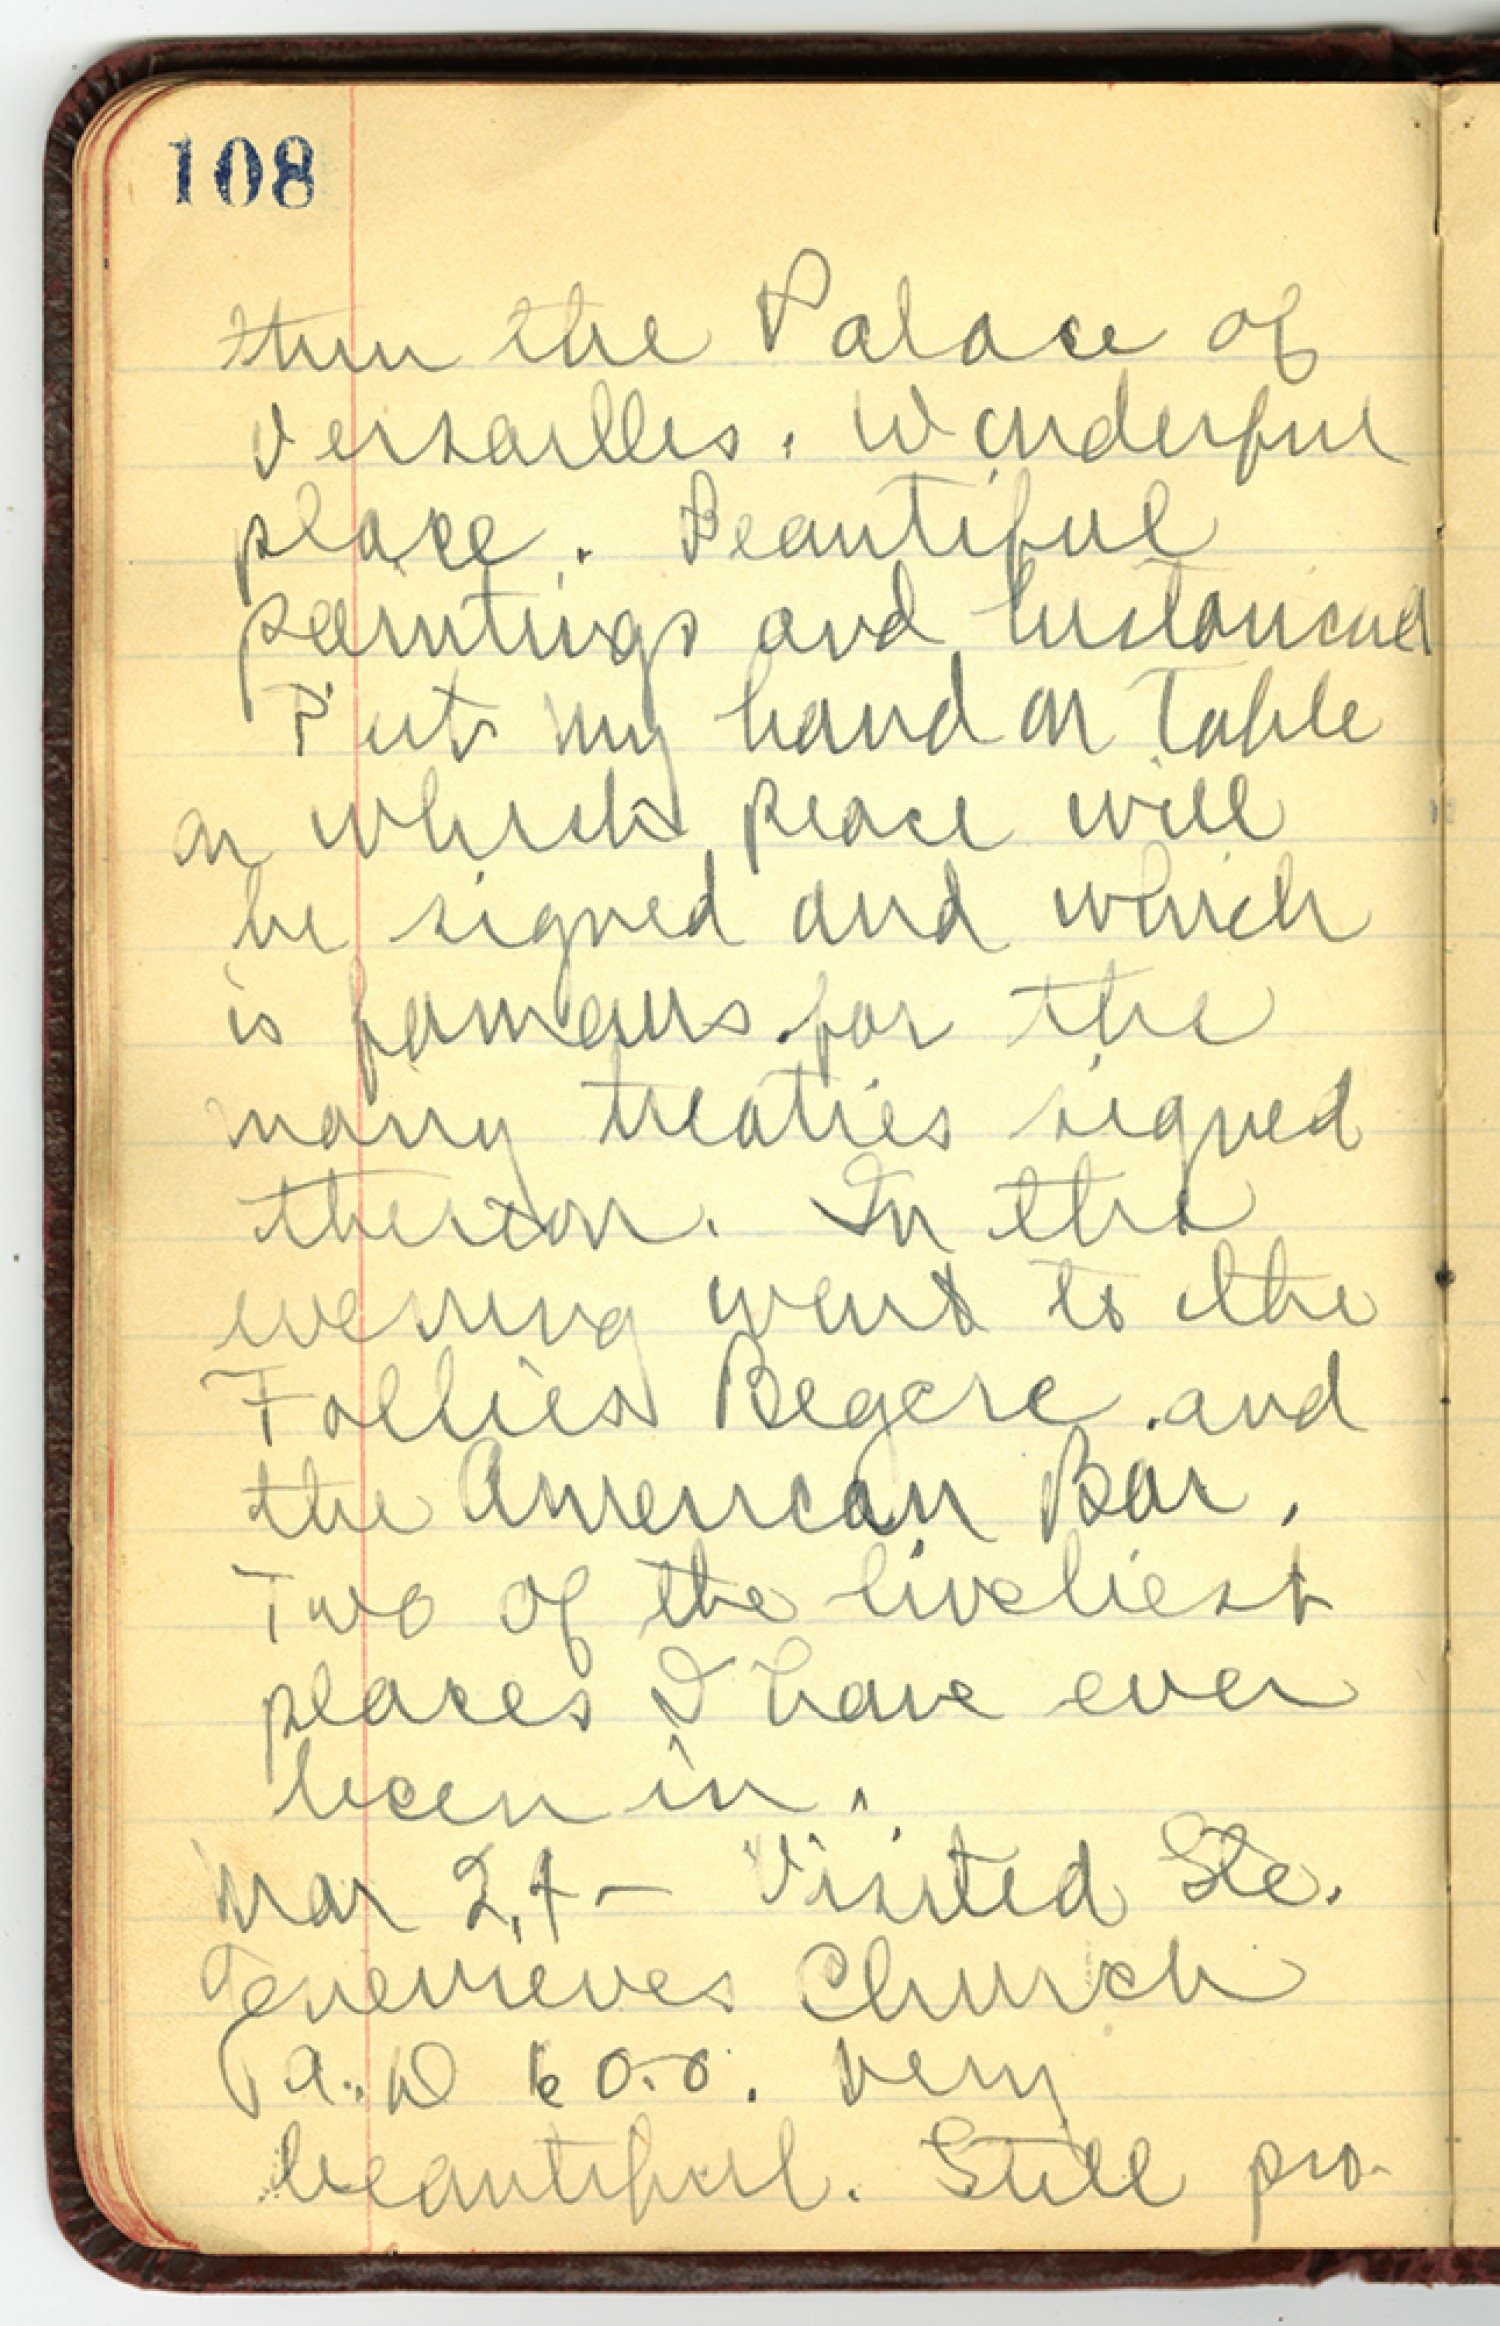 108
thru the Palace of
Versailles. Wonderful
place. Beautiful
paintings and historical
Put my hand on table
on which peace will
be signed and which
is famous for the
many treaties signed
thereon. In the
evening went to the
Follies Begere and
the American Bar.
Two of the liveliest
places I have ever
been in.
Mar 24 - Visited Ste.
Genevieves Church
A.D 600. Very
beautiful. Still pro-